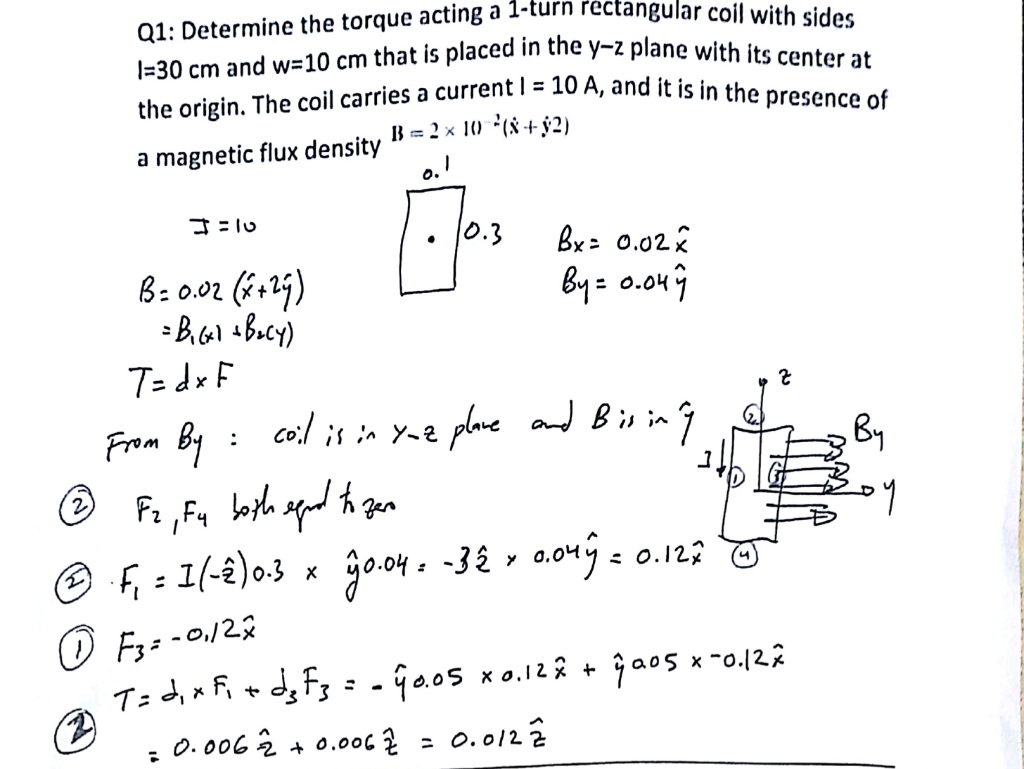 Q1: Determine the torque acting a 1-turn rectangular coil with sides
l=30 cm and w=10 cm that is placed in the y-z plane with its center at
the origin. The coil carries a current I = 10 A, and it is in the presence of
a magnetic flux density B = 2 × 10⁻²(x̂ + ŷ2)
0.1
I = 10
0.3
Bx = 0.02 x̂
B = 0.02 (x̂ + 2ŷ)
By = 0.04 ŷ
= B₁(x) + B₂(y)
T = d × F
z
From By : coil is in Y-Z plane and B is in ŷ
2
By
I
1
3
y
② F₂, F₄ both equal to zero
② F₁ = I(-ẑ)0.3 × ŷ0.04 = -3ẑ × 0.04ŷ = 0.12x̂
4
① F₃ = -0.12x̂
T = d₁ × F₁ + d₃F₃ = -ŷ0.05 × 0.12x̂ + ŷ0.05 × -0.12x̂
② = 0.006ẑ + 0.006ẑ = 0.012ẑ